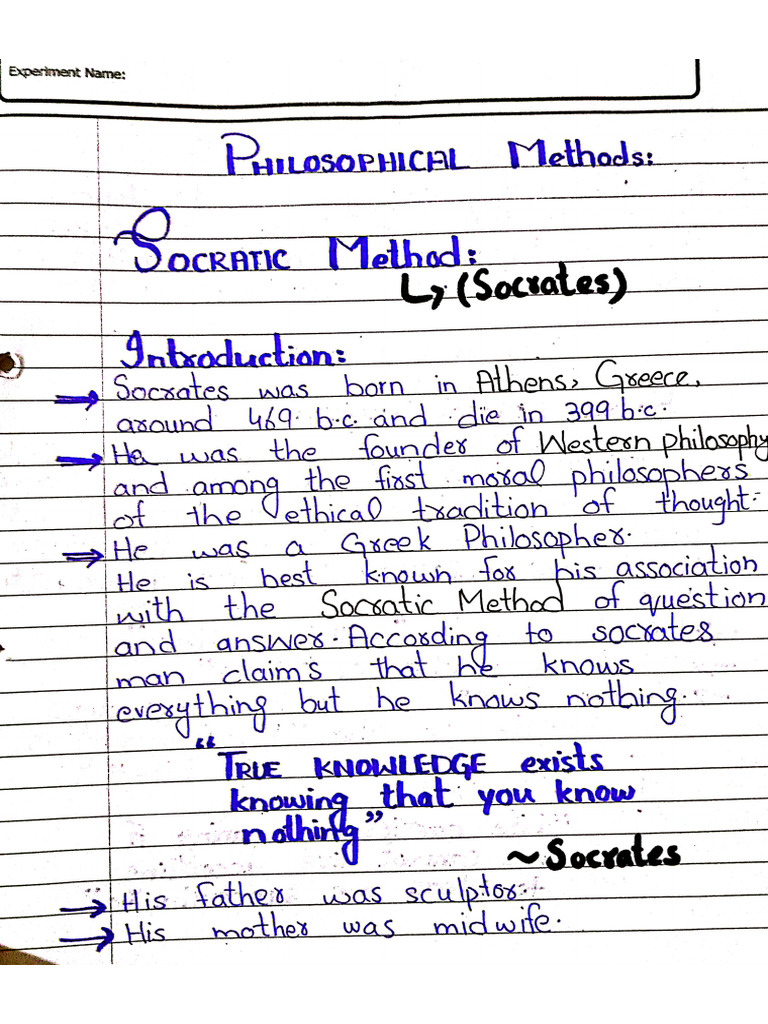 Experiment Name:
PHILOSOPHICAL Methods:
SOCRATIC Method:
↳ (Socrates)
Introduction:
→ Socrates was born in Athens, Greece,
around 469. b.c. and die in 399 b.c.
→ He was the founder of Western philosophy
and among the first moral philosophers
of the ethical tradition of thought.
→ He was a Greek Philosopher.
He is best known for his association
with the Socratic Method of question
and answer. According to socrates
man claims that he knows
everything but he knows nothing.
“TRUE KNOWLEDGE exists
knowing that you know
nothing”
~ Socrates
→ His father was sculptor.
→ His mother was midwife.